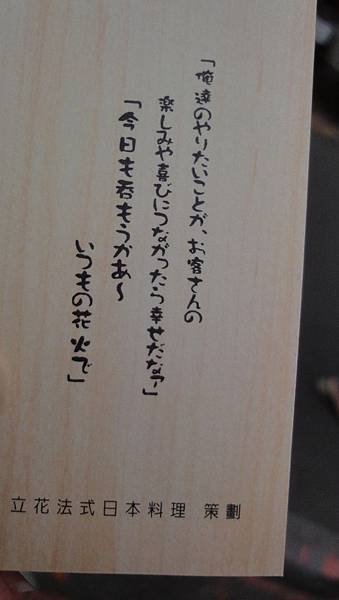 「俺達のやりたいことが、お客さんの
楽しみや喜びにつながったら幸せだなァ」
「今日も呑もうかあ〜
いつもの花火で」
立花法式日本料理 策劃